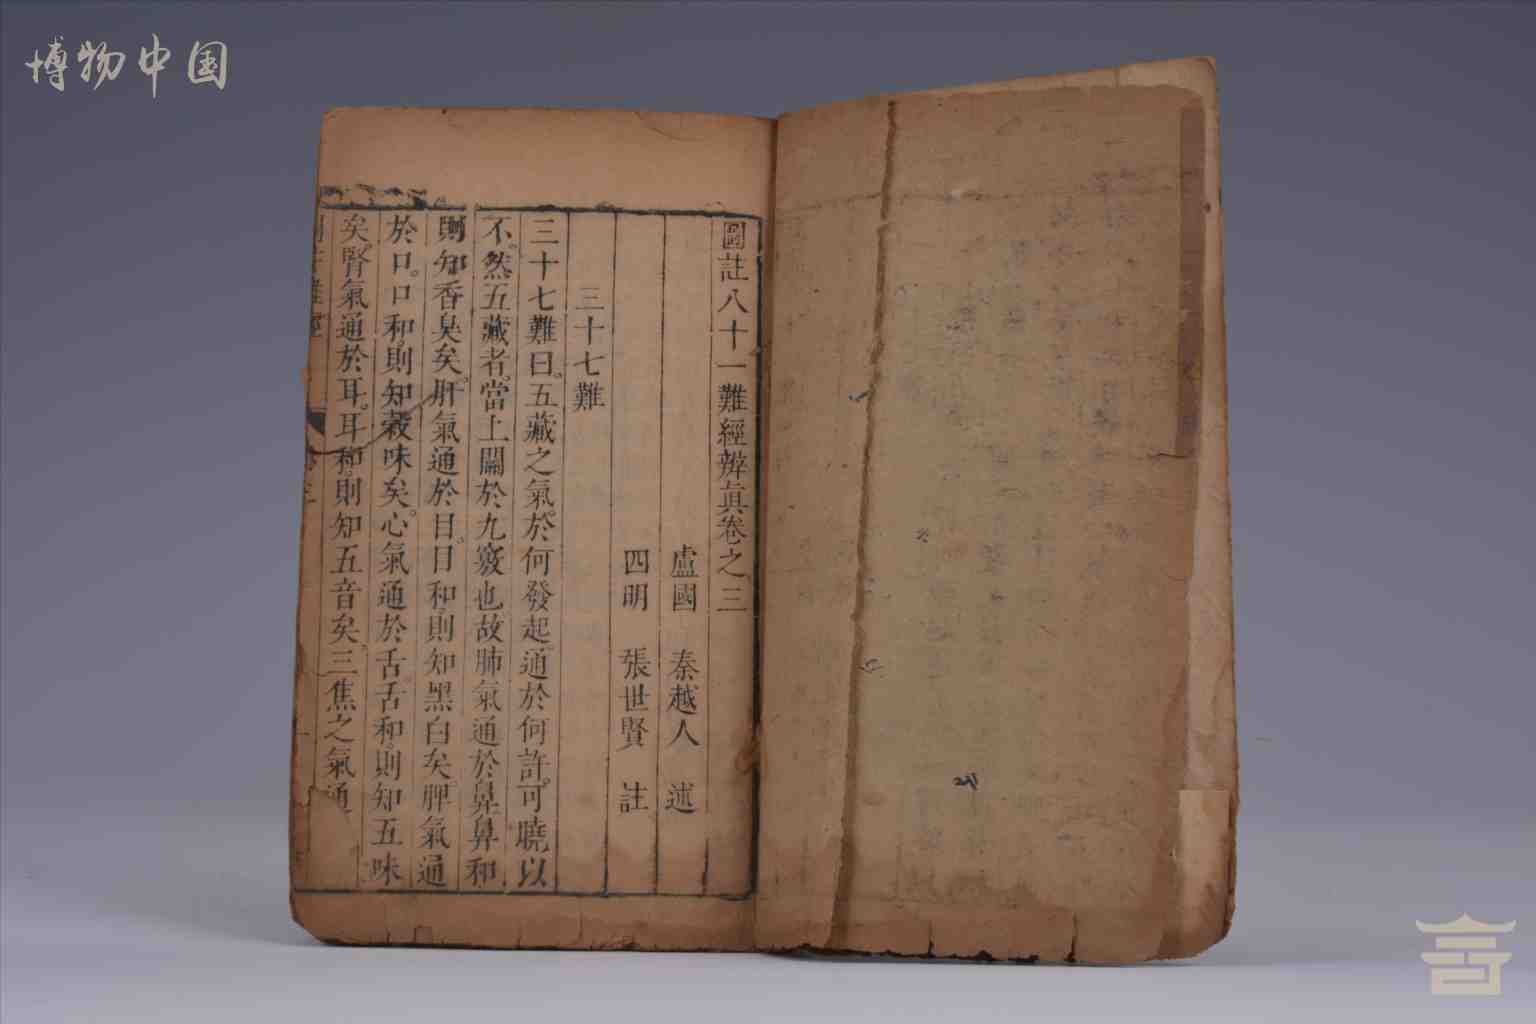 博物中国
圖註八十一難經辨眞卷之三
盧國 秦越人 述
四明 張世賢 註
三十七難
三十七難曰。五藏之氣。於何發起。通於何許。可曉以
不。然。五藏者。當上關於九竅也。故肺氣通於鼻。鼻和
則知香臭矣。肝氣通於目。目和。則知黑白矣。脾氣通
於口。口和。則知穀味矣。心氣通於舌。舌和。則知五味
矣。腎氣通於耳。耳和。則知五音矣。三焦之氣通